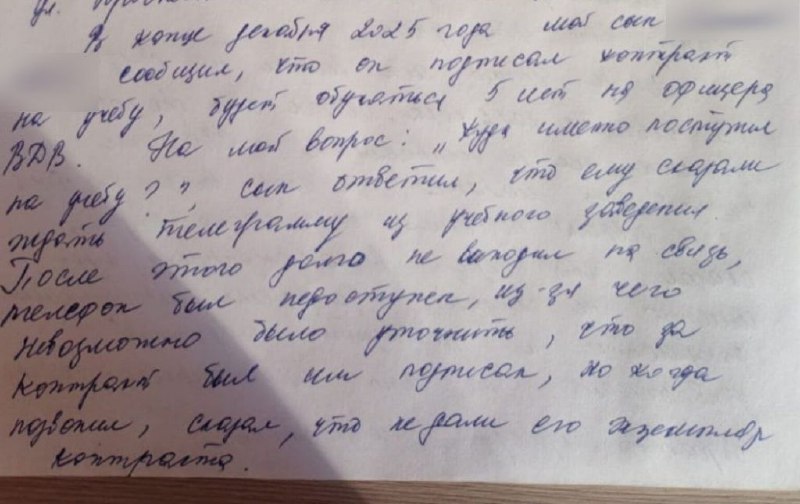 ул.
В конце декабря 2025 года мой сын
сообщил, что он подписал контракт
на учебу, будет обучаться 5 лет на офицера
ВДВ. На мой вопрос: „Куда именно поступил
на учебу??, сын ответил, что ему сказали
ждать телеграмму из учебного заведения.
После этого долго не выходил на связь,
телефон был недоступен, из-за чего
невозможно было уточнить, что за
контракт был им подписан, но когда
позвонил, сказал, что не дали его экземпляр
контракта.